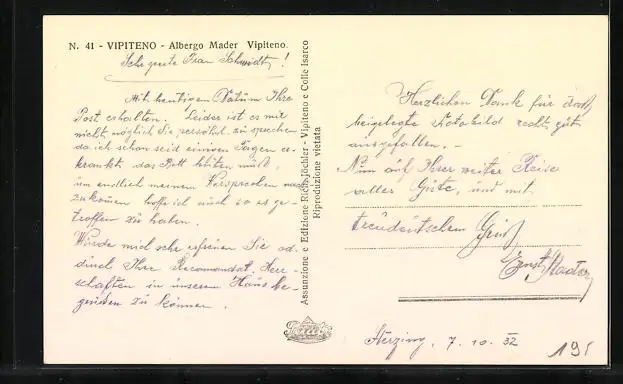 N. 41 - VIPITENO - Albergo Mader Vipiteno.
Sehr geehrte Frau Schmidt!
Mit heutigem Datum Ihre
Post erhalten. Leider ist es mir
nicht möglich Sie persöhl. zu sprechen
da ich schon seid einigen Tagen er-
krankt das Bett hüten muß,
um endlich meinem Versprechen nach
zukommen hoffe ich auch so es ge-
troffen zu haben.
Würde mich sehr erfreuen Sie od.
durch Ihre Recomandat. Herr-
schaften in unserem Haus be-
grüßen zu können.
Assunzione e Edizione Rich. Jöchler - Vipiteno e Colle Isarco
Riproduzione vietata
Herzlichen Dank für das
beigelegte Fotobild recht gut
ausgefallen. -
Nun auf Ihrer weiter Reise
alles Gute, und mit
treudeutschem Gruß
Ernst Mader
Sterzing, 7. 10. 32
195